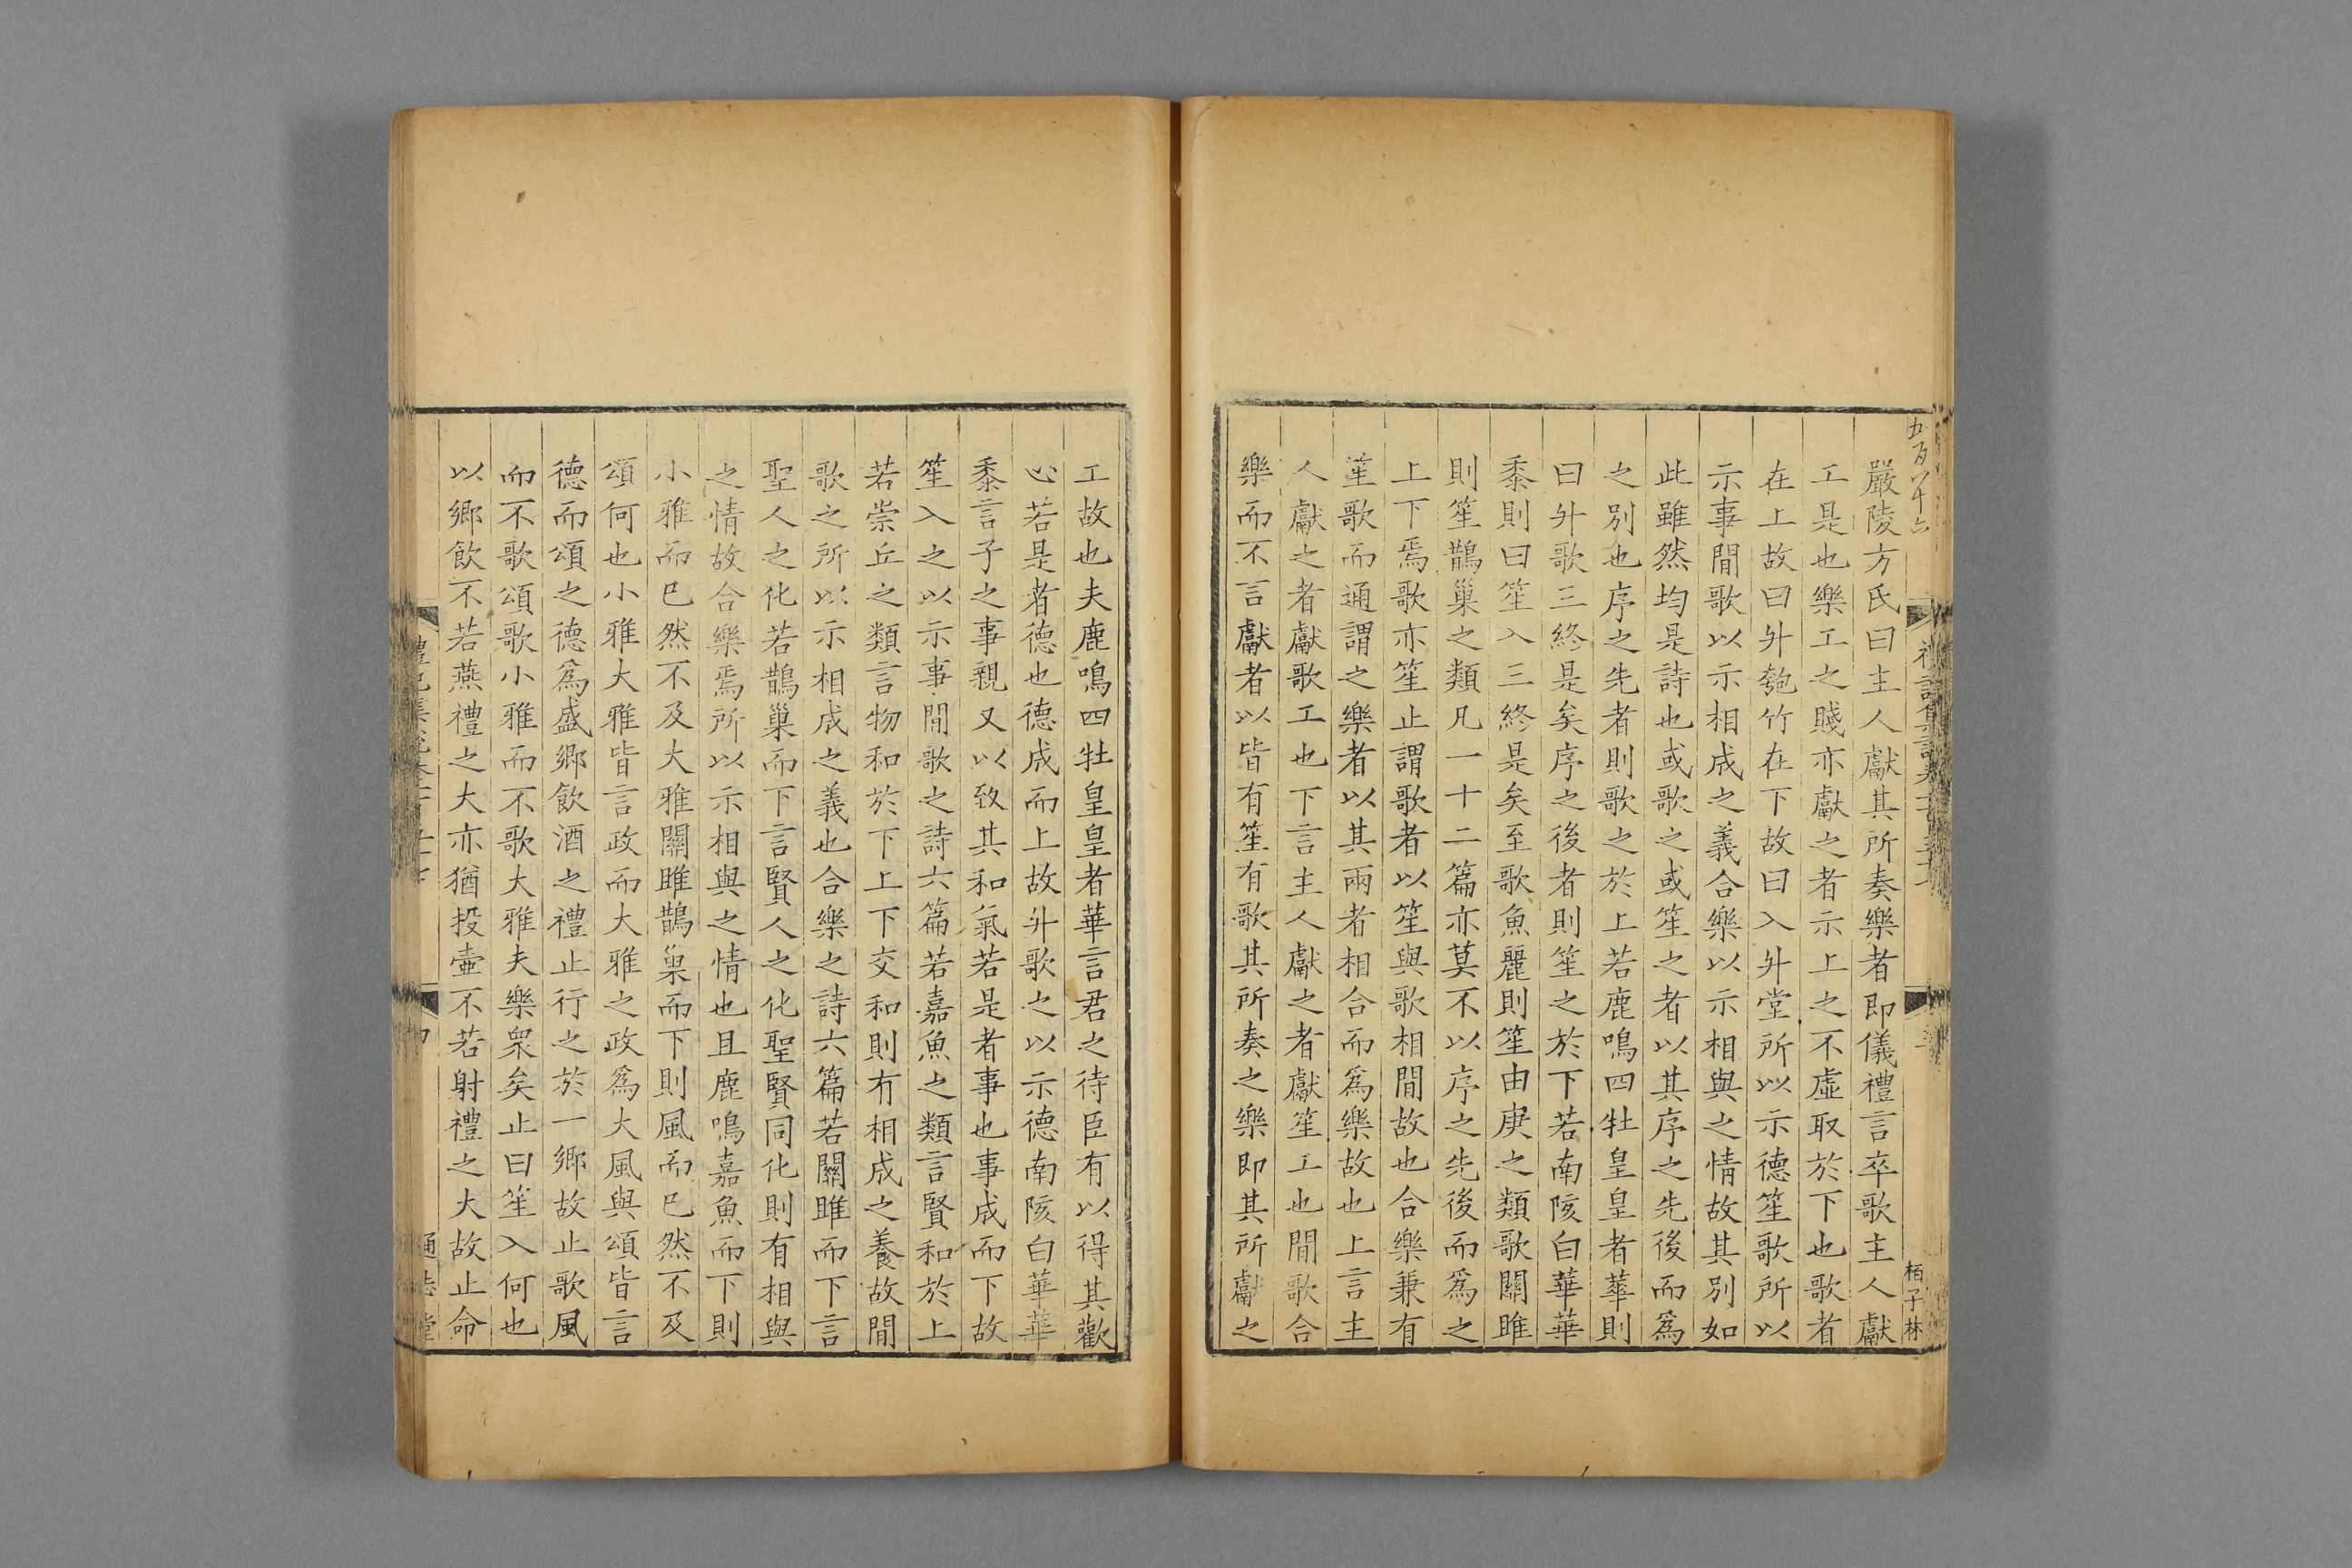 嚴陵方氏曰主人獻其所奏樂者即儀禮言卒歌主人獻
工是也樂工之賤亦獻之者示上之不虛取於下也歌者
在上故曰升匏竹在下故曰入升堂所以示德笙歌所以
示事間歌以示相成之義合樂以示相與之情故其別如
此雖然均是詩也或歌之或笙之者以其序之先後而爲
之別也序之先者則歌之於上若鹿鳴四牡皇皇者華則
曰升歌三終是矣序之後者則笙之於下若南陔白華華
黍則曰笙入三終是矣至歌魚麗則笙由庚之類歌關雎
則笙鵲巢之類凡一十二篇亦莫不以序之先後而爲之
上下焉歌亦笙止謂歌者以笙與歌相間故也合樂兼有
笙歌而通謂之樂者以其兩者相合而爲樂故也上言主
人獻之者獻歌工也下言主人獻之者獻笙工也間歌合
樂而不言獻者以皆有笙有歌其所奏之樂即其所獻之
栢子林
工故也夫鹿鳴四牡皇皇者華言君之待臣有以得其歡
心若是者德也德成而上故升歌之以示德南陔白華華
黍言子之事親又以致其和氣若是者事也事成而下故
笙入之以示事間歌之詩六篇若嘉魚之類言賢和於上
若崇丘之類言物和於下上下交和則有相成之養故間
歌之所以示相成之義也合樂之詩六篇若關雎而下言
聖人之化若鵲巢而下言賢人之化聖賢同化則有相與
之情故合樂焉所以示相與之情也且鹿鳴嘉魚而下則
小雅而巳然不及大雅關雎鵲巢而下則風而巳然不及
頌何也小雅大雅皆言政而大雅之政爲大風與頌皆言
德而頌之德爲盛鄉飲酒之禮止行之於一鄉故止歌風
而不歌頌歌小雅而不歌大雅夫樂衆矣止曰笙入何也
以鄉飲不若燕禮之大亦猶投壷不若射禮之大故止命
通志堂